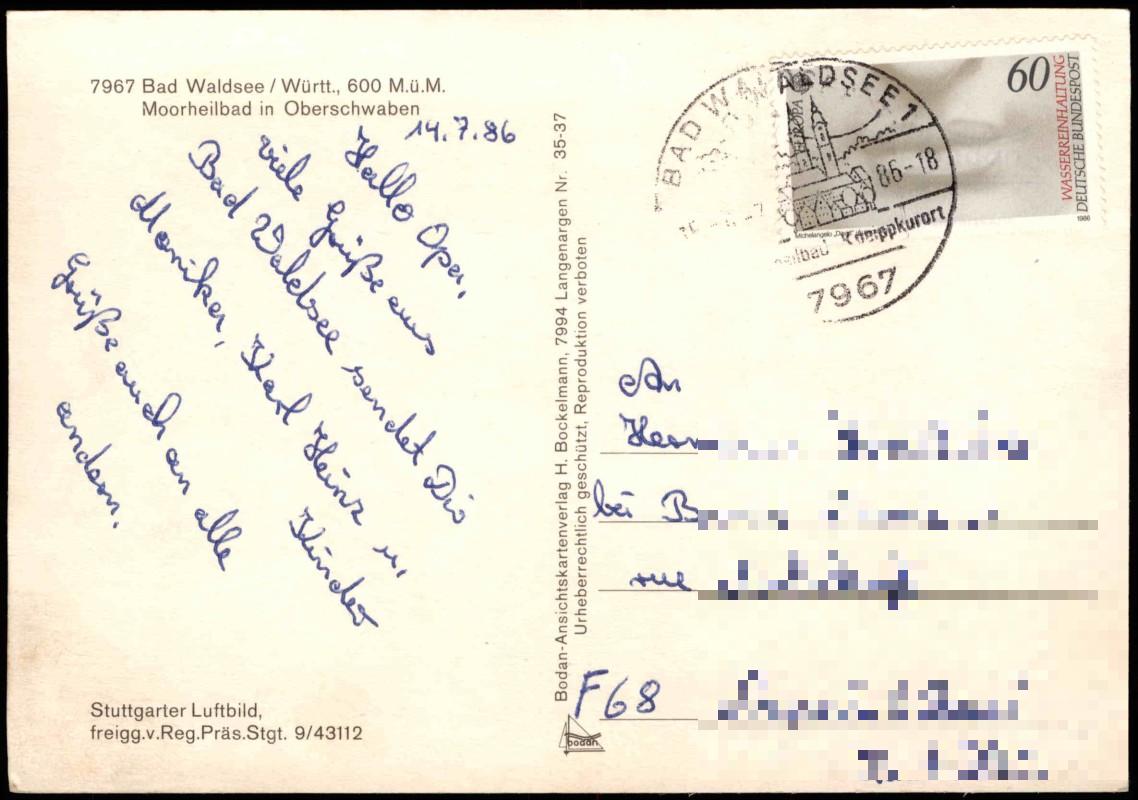 7967 Bad Waldsee / Württ., 600 M.ü.M.
Moorheilbad in Oberschwaben
14.7.86
Hallo Opa,
viele Grüße aus
Bad Waldsee sendet Dir
Monika, Karl Heinz u.
Kinder
Grüße auch an alle
andern.
Stuttgarter Luftbild,
freigg.v.Reg.Präs.Stgt. 9/43112
Bodan-Ansichtskartenverlag H. Bockelmann, 7994 Langenargen Nr. 35-37
Urheberrechtlich geschützt, Reproduktion verboten
bodan
BAD WALDSEE 1
86-18
Kneippkurort
7967
60
EUROPA
WASSERREINHALTUNG
DEUTSCHE BUNDESPOST
1986
An
Herrn
bei
rue
F68